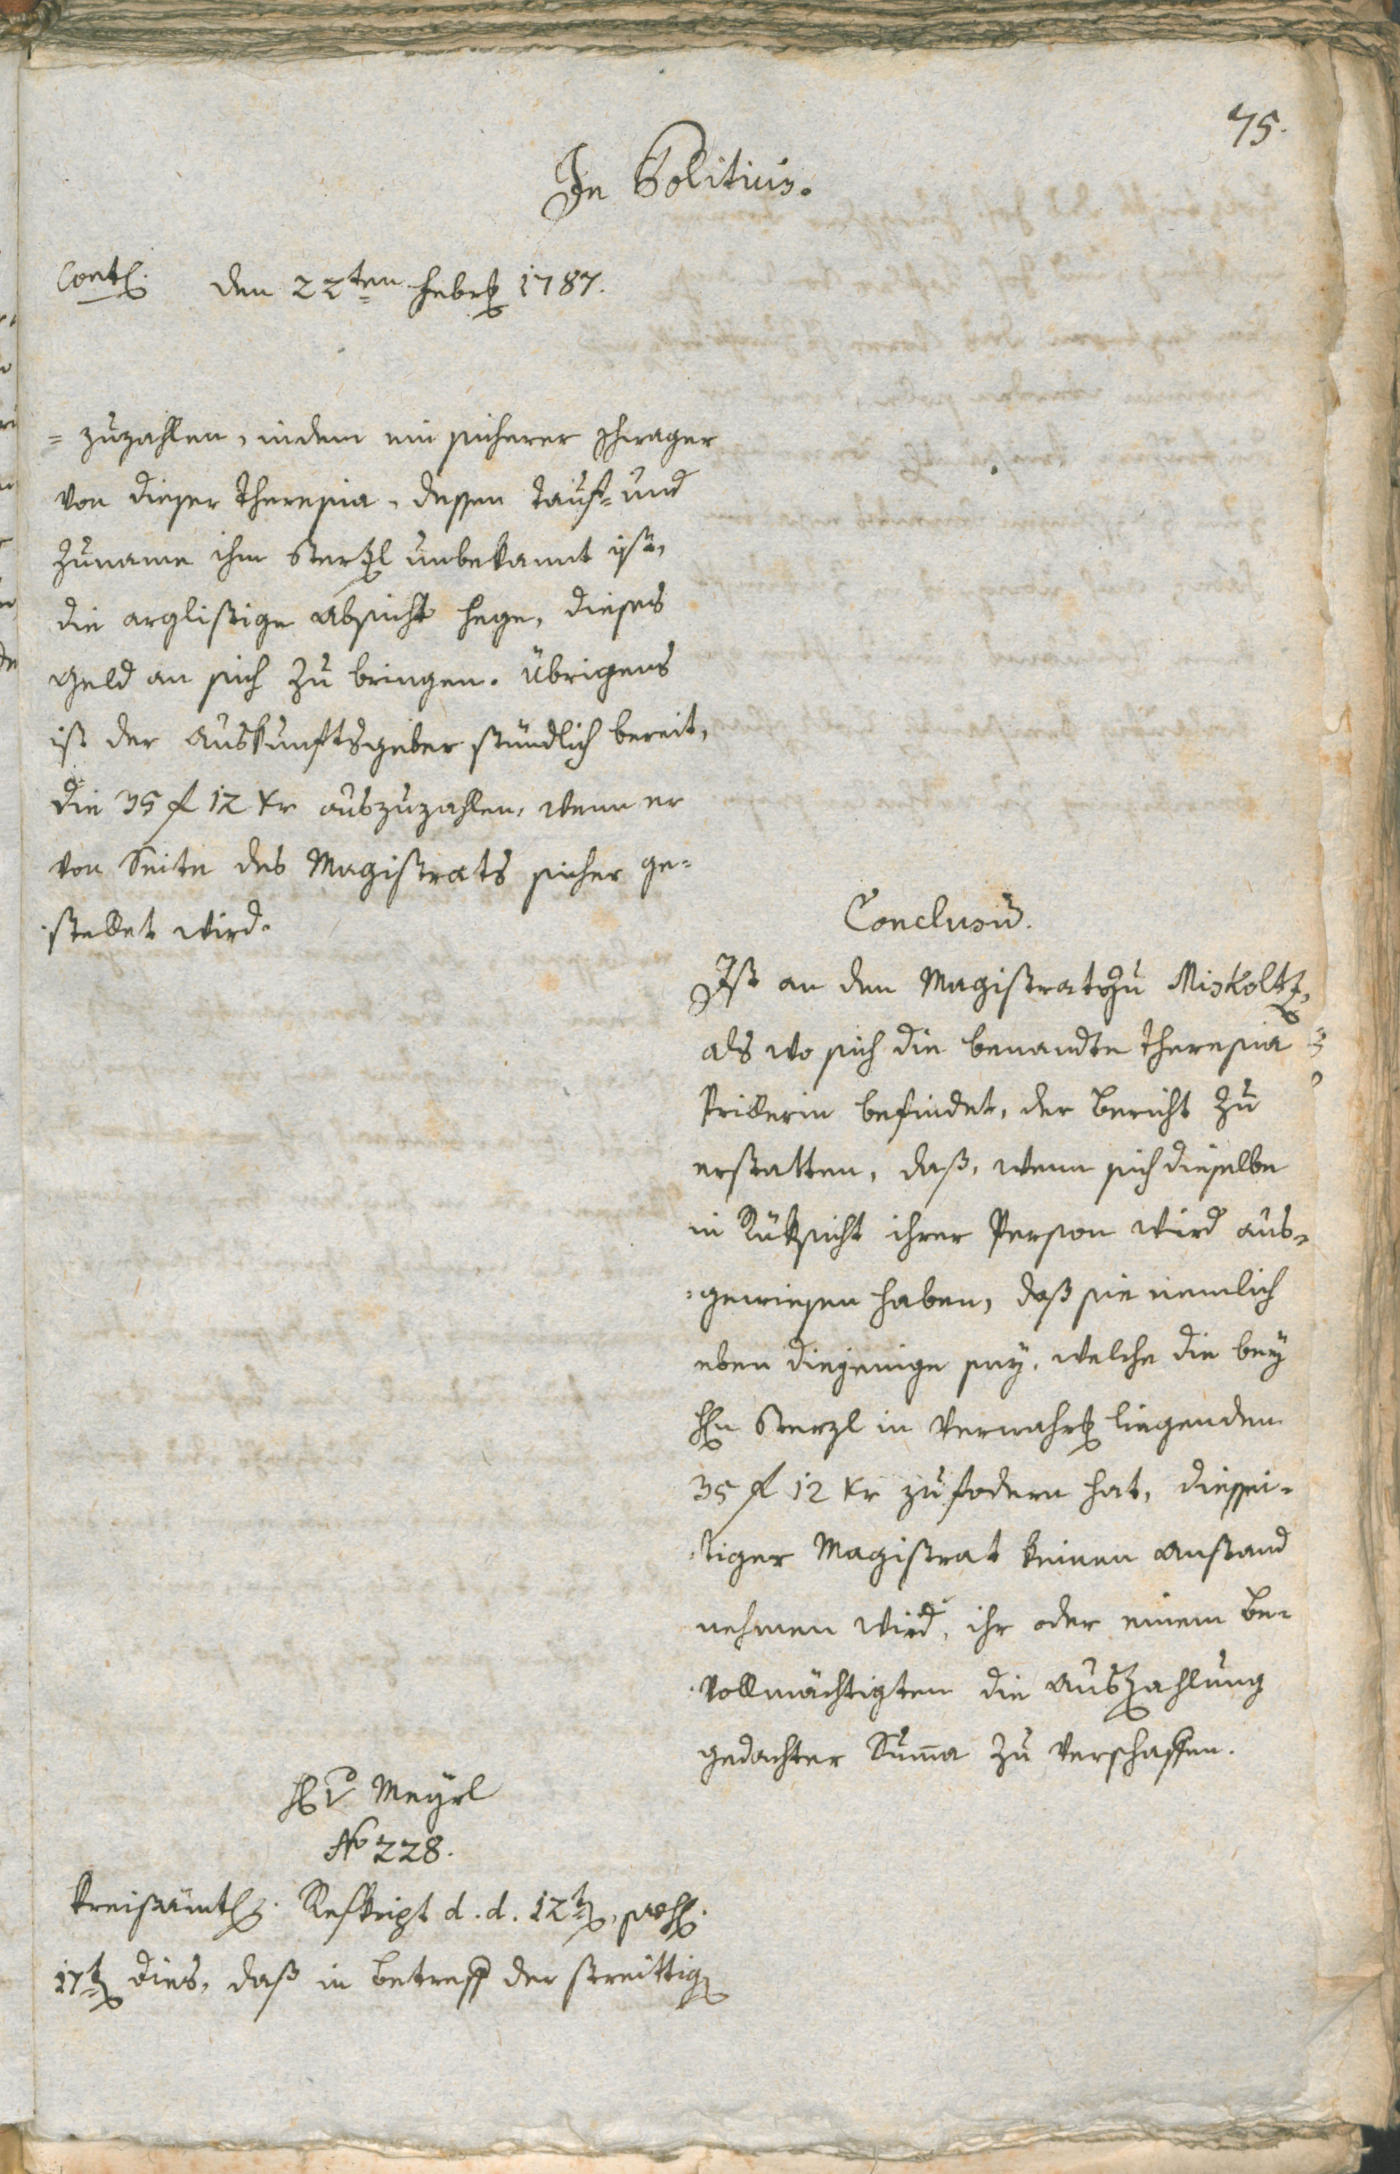 75.
In Politicis.
Cont. den 22ten Febr. 1787.
= zuzahlen, indem ein sicherer Schwager
von dieser Theresia, dessen Tauf- und
Zuname ihm Sterzl unbekannt ist,
die arglistige Absicht hege, dieses
Geld an sich zu bringen. Übrigens
ist der Auskunftsgeber stündlich bereit,
die 35 f 12 Xr auszuzahlen, wenn er
von Seite des Magistrats sicher ge-
stellet wird.
Conclusum.
Ist an den Magistrat zu Miskoltz,
als wo sich die benandte Theresia
Prillerin befindet, der Bericht zu
erstatten, daß, wenn sich dieselbe
in Rüksicht ihrer Person wird aus-
-gewiesen haben, daß sie nemlich
eben diejenige sey, welche die bey
Hrn Sterzl in Verwahr. liegenden
35 f 12 Xr zu fodern hat, diessei-
-tiger Magistrat keinen Anstand
nehmen wird, ihr oder einem Be-
-vollmächtigten die Auszahlung
gedachter Summa zu verschaffen.
Hr Meyrl
No 228.
Kreisämtl. Reskript d. d. 12t., praes.
17t. dies, daß in Betreff der streittig.